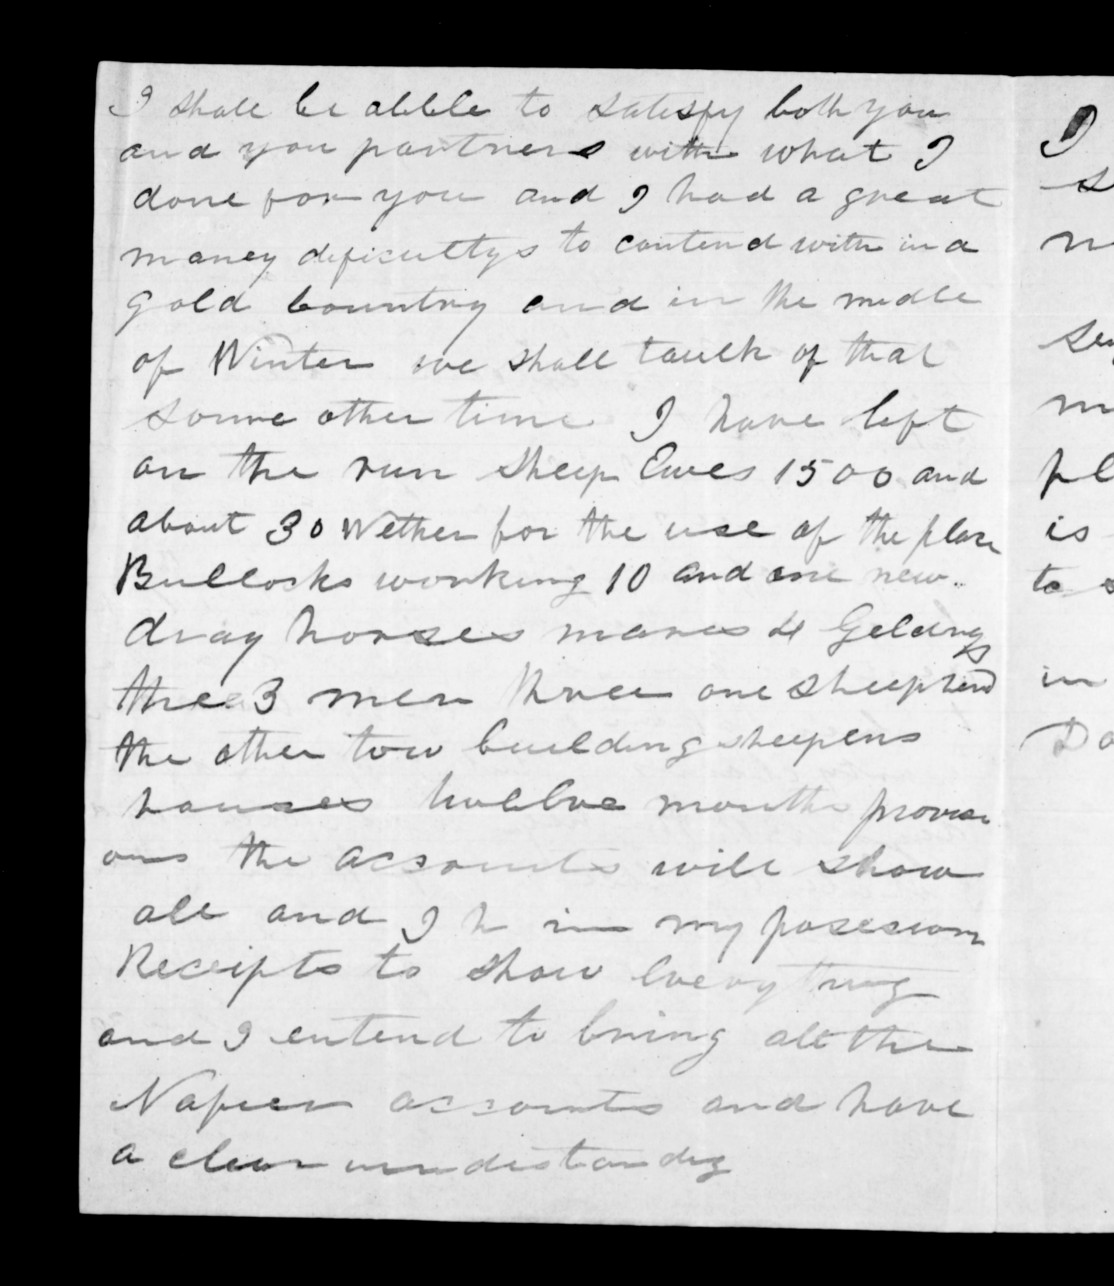 I shall be abble to satesfy both you
and you partners with what I
done for you and I had a great
money deficultys to contend with in a
gold country and in the midle
of Winter we shall taulk of that
soume other time I have left
on the run sheep Ewes 1500 and
about 30 Wether for the use of the place
Bullocks working 10 and one new
dray horses mares 4 Geldings
three 3 men three one sheepherd
the other tow building sheepens
houses twelbve months provisi
ons the accounts will show
all and I h in my posesion
Receipts to show everything
and I entend to bring all the
Napier accounts and have
a clear undestandig
I
s
m
se
m
pl
is
to s
in
Do